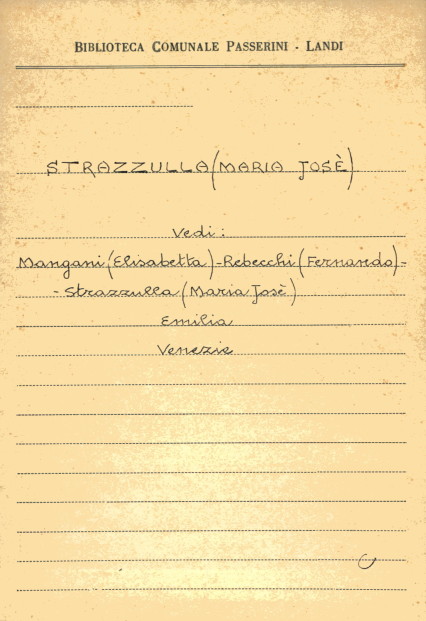 BIBLIOTECA COMUNALE PASSERINI - LANDI
STRAZZULLA (MARIA JOSÈ)
Vedi:
Mangani (Elisabetta) - Rebecchi (Fernando) -
- Strazzulla (Maria Josè)
Emilia
Venezie